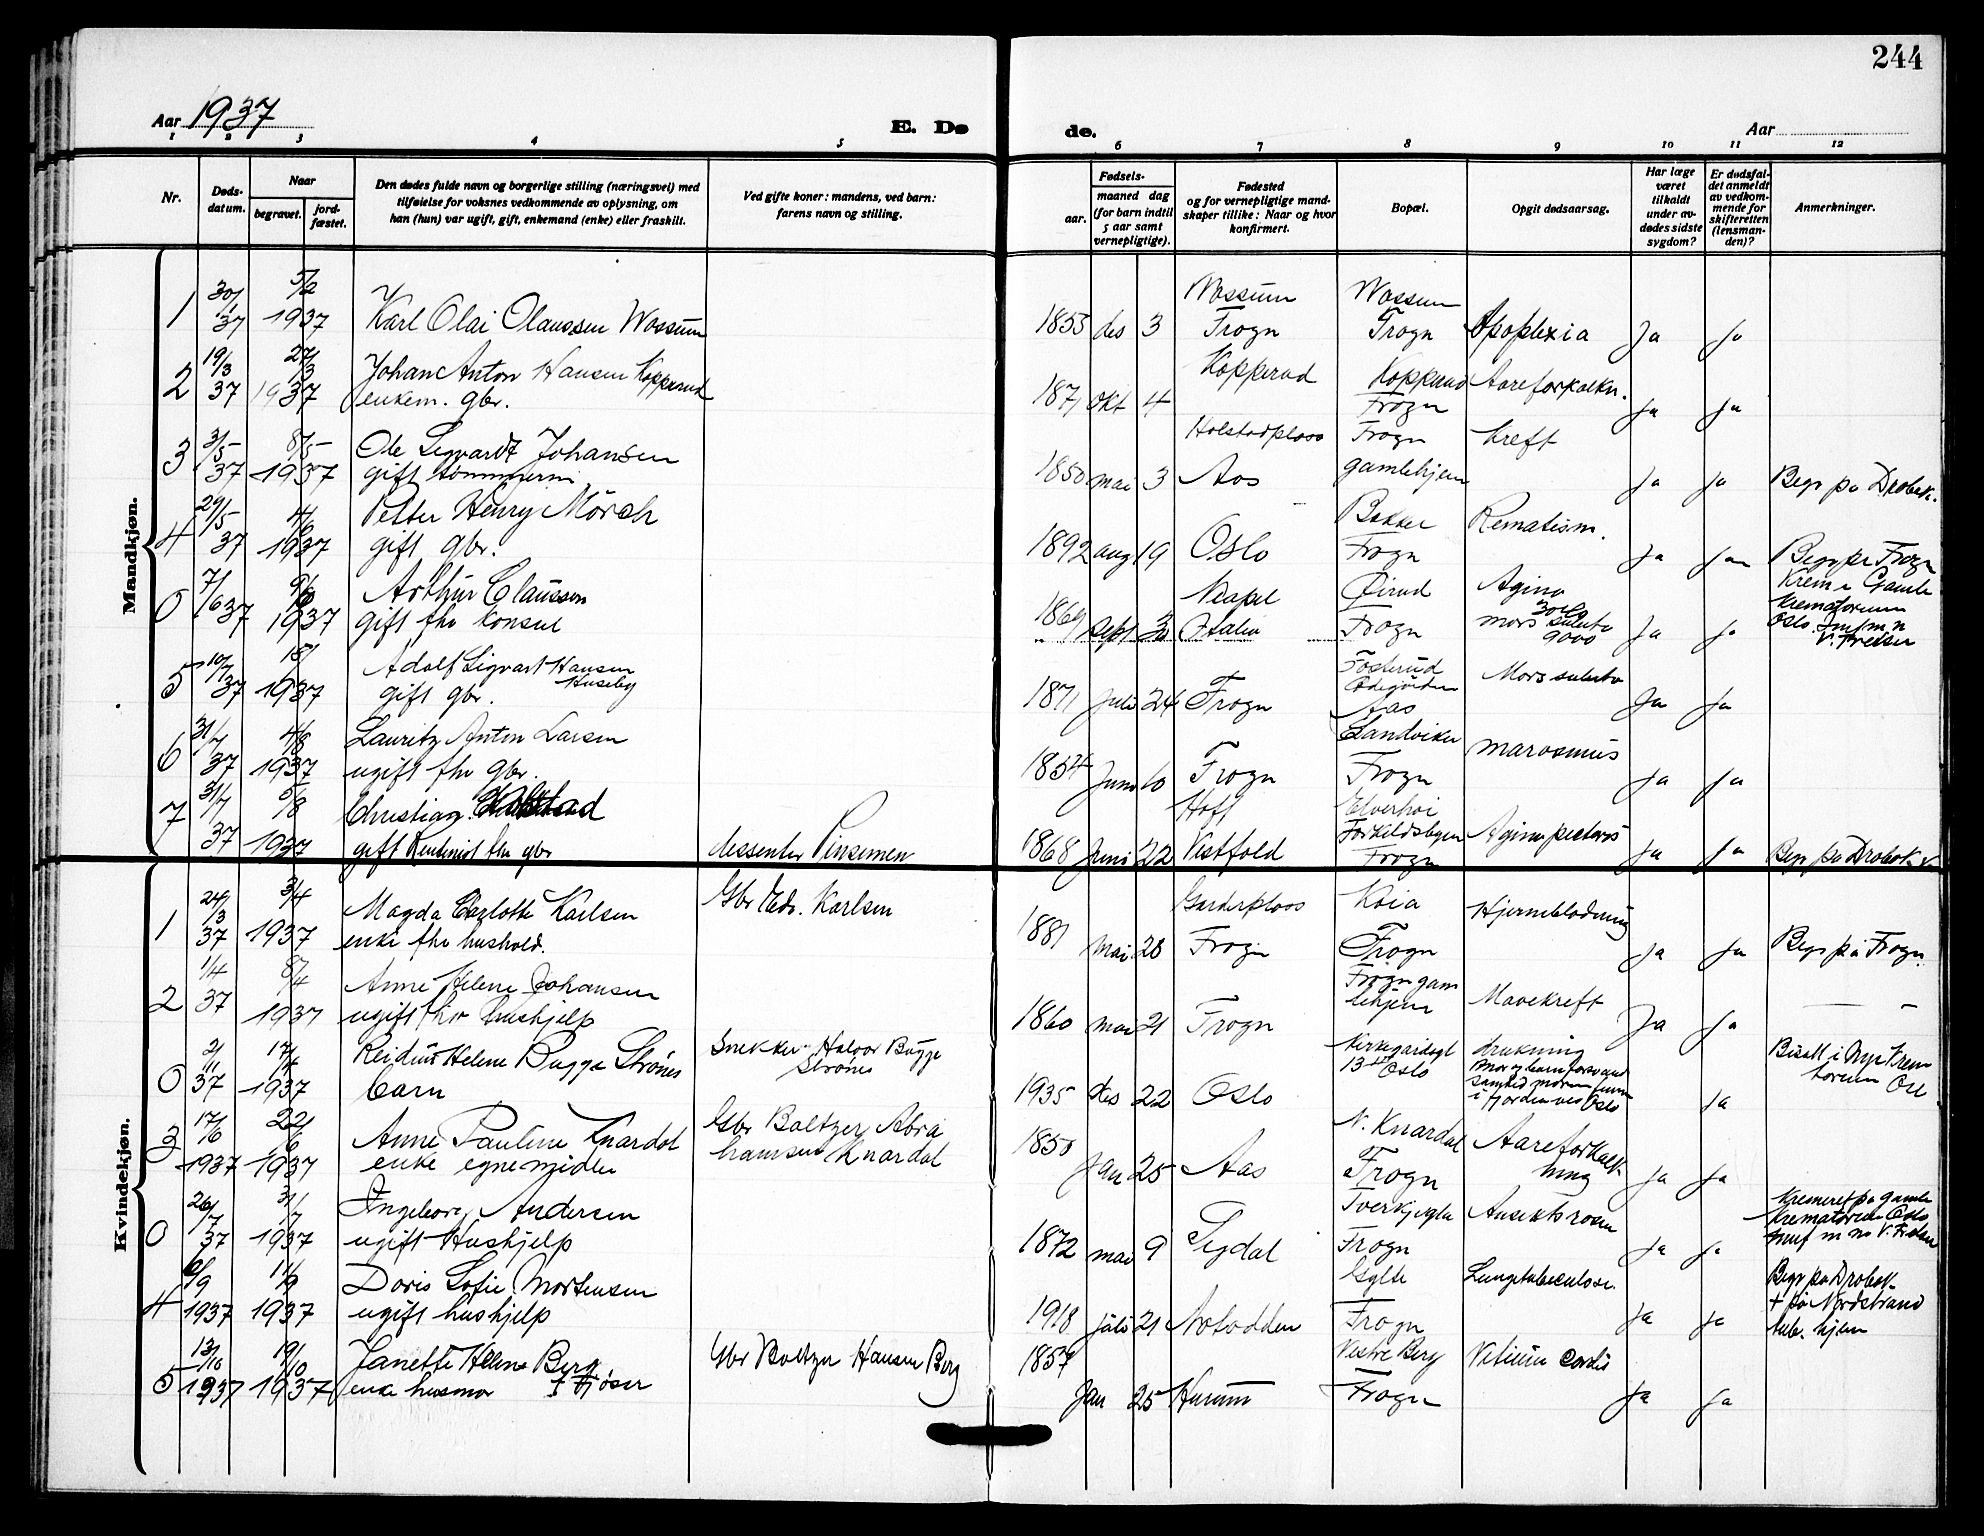 244
Aar 1937
E. Dø
de.
Aar
1 2 3 4 5 6 7 8 9 10 11 12
Nr.
Døds-
datum.
Naar
begravet.
jord-
fæstet.
Den dødes fulde navn og borgerlige stilling (næringsvei) med
tilføielse for voksnes vedkommende av oplysning, om
han (hun) var ugift, gift, enkemand (enke) eller fraskilt.
Ved gifte koner: mandens, ved barn:
farens navn og stilling.
Fødsels-
aar.
maaned dag
(for barn indtil
5 aar samt
vernepligtige).
Fødested
og for vernepligtige mand-
skaper tillike: Naar og hvor
konfirmert.
Bopæl.
Opgit dødsaarsag.
Har læge
været
tilkaldt
under av-
dødes sidste
sygdom?
Er dødsfal-
det anmeldt
av vedkom-
mende for
skifteretten
(lensman-
den)?
Anmerkninger.
Mandkjøn.
1 30/1 37 5/2 1937 Karl Olai Olaussen Wossum
1853 des 3 Wossum Frogn Wossum Frogn Apoplexia Ja Ja
2 19/3 37 27/3 1937 Johan Anton Hansen Kopperud
enkem. gbr.
1871 okt 4 Kopperud Kopperud Frogn Aareforkalkn. Ja Ja
3 3/5 37 8/5 1937 Ole Sigvardt Johansen
gift tømmerm
1850 mai 3 Holstadplass Aas Frogn gamlehjem kreft Ja Ja Begr på Drøbak.
4 29/5 37 4/6 1937 Petter Henry Mörch
gift gbr.
1892 aug 19 Oslo Bakker Frogn Rematism. Ja Ja Begr på Frogn
0 7/6 37 1937 Arthur Claussen
gift fhv konsul
1869 sept 30 Neapel Italia Frogn Agina
mors subito Ja Ja Krem i Gamle
Krematorium
Oslo
5 10/7 37 1937 Adolf Sigvart Hansen
Huseby
gift gbr.
1871 Juli 24 Frogn Aas Mors subito Ja Ja
6 31/7 37 4/8 1937 Lauritz Anton Larsen
ugift fhv gbr.
1854 Juni 10 Frogn Sandviken Frogn marasmus Ja Ja
7 31/7 37 5/8 1937 Christian
gift Rentenist fhv gbr dissenter Pinsemen
1868 Juni 22 Hoff Vestfold Elverhøi
Frogn Agina pectoris Ja Ja Begr på Drøbak
Kvindekjøn.
1 24/3 37 3/4 1937 Magda Carlotte Karlsen
enke fhv hushold. Gbr Edv. Karlsen
1881 mai 28 Garderplass Frogn Kaia Frogn Hjerneblødning Ja Ja Begr på Frogn.
2 1/4 37 8/4 1937 Anne Helene Johansen
ugift fhv hushjelp
1860 mai 21 Frogn Frogn gam
lehjem Mavekreft Ja Ja
0 2/1 37 17/4 1937 Reidun Helene Bugge Strønes
barn Snekker Halvor Bugge
Strønes
1935 des 22 Oslo Kirkegaardsgt
13 Oslo drukning
Mor og barn forsvand
i fjorden ved Oslo Ja Bisatt i Nye Krem
torium
3 17/6 1937 22/6 1937 Anne Pauline Knardal
enke egne midler Gbr Baltzer Abra
hamsen Knardal
1850 Jan 25 Aas N. Knardal Frogn Aareforkalk
ning Ja Ja
0 26/7 37 31/7 1937 Ingeborg Andersen
ugift Hushjelp
1872 mai 9 Sigdal Frogn Ansiktsrosen Ja Ja Kremert på gamle
Krematorium Oslo
4 6/9 1937 11/9 1937 Doris Sofie Mortensen
ugift hushjelp
1918 juli 21 Notodden Gylte Frogn Lungetuberculose. Ja Ja Begr på Drøbak
+ på Nordstrand
tub. hjem
5 13/10 1937 19/10 1937 Janette Helene Berg
enke husmor Gbr Baltzer Hansen Berg
1857 Jan 25 Hurum Vestre Berg Frogn Vitium Cordis Ja Ja